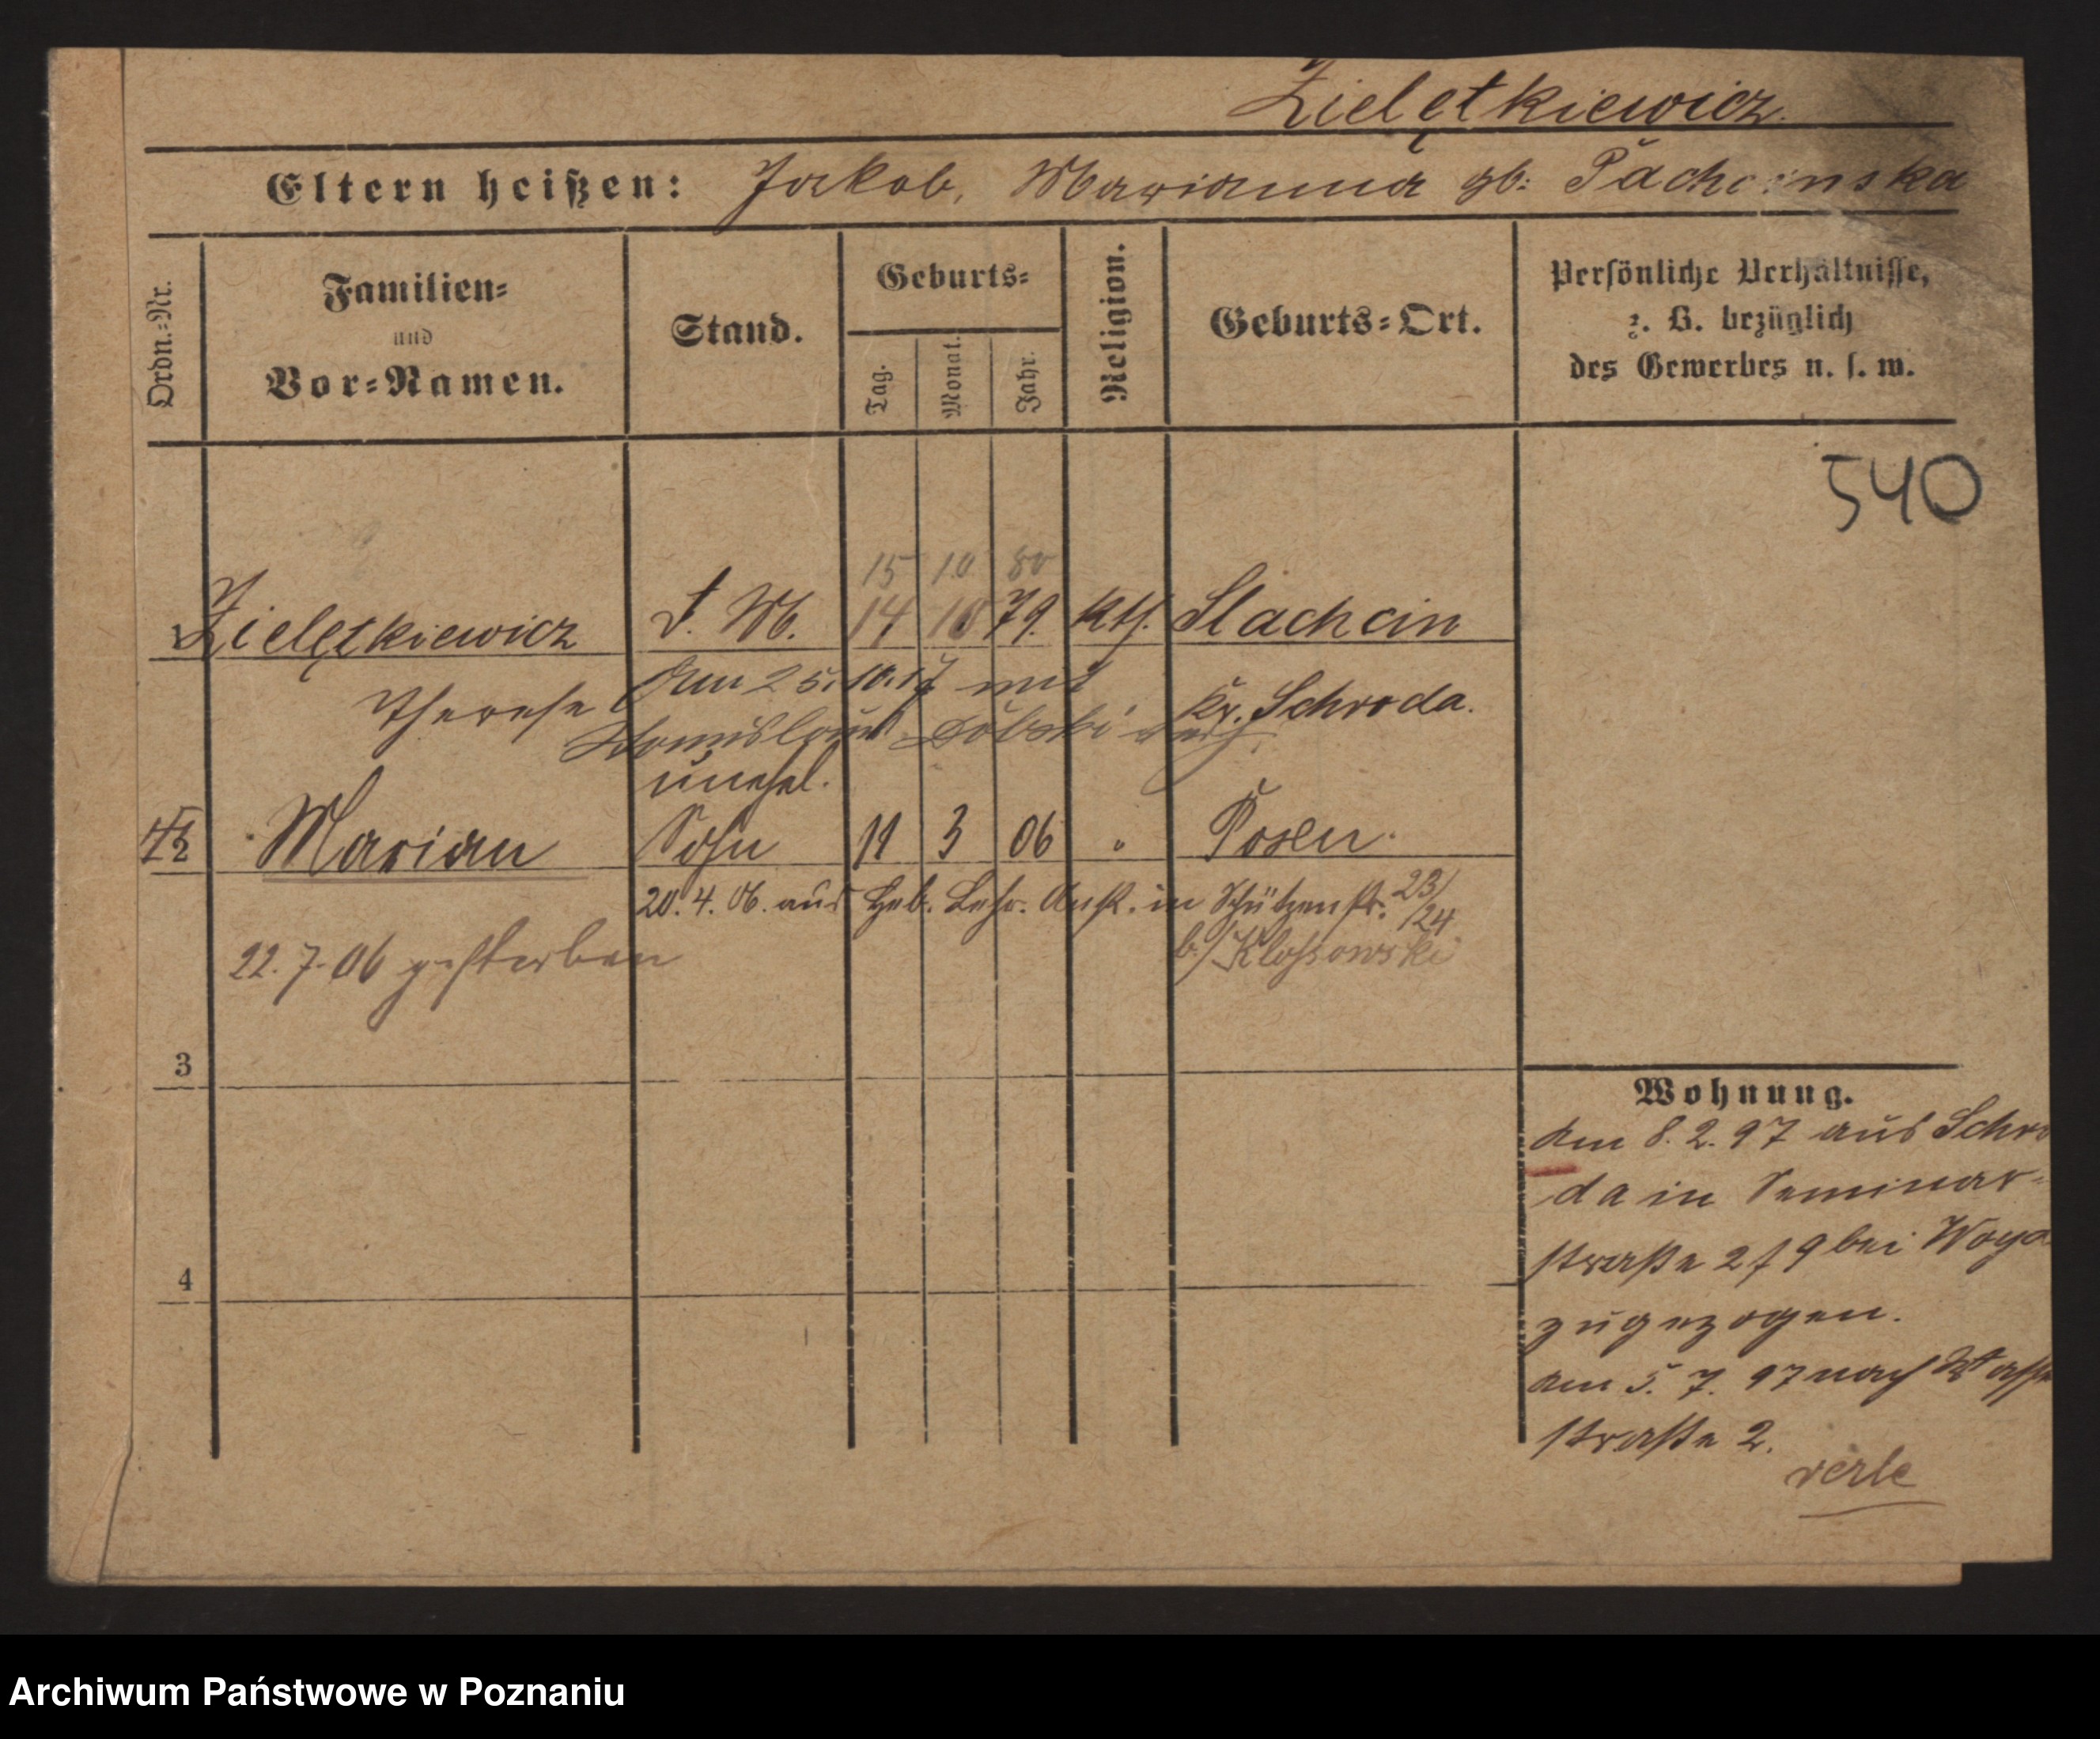 Zielętkiewicz.
Eltern heißen: Jakob, Marianna gb:
Ordn.=Nr.
Familien=
und
Vor=Namen.
Stand.
Geburts=
Tag.
Monat.
Jahr.
Religion.
Geburts=Ort.
Persönliche Verhältnisse,
z. B. bezüglich
des Gewerbes u. s. w.
540
15 10 80
1 Zielętkiewicz D. M. 14 10 79. kth. Slachcin
Therese
Am 25.10.17 mit
Kr. Schroda.
Stanislaus
unehel.
2 Marian Sohn 11 3 06 " Posen.
20. 4. 06. aus Heb. Lehr. Anst. in Schützenstr. 23/
/24
b/ Klossowski
22. 7. 06 gestorben
3
4
Wohnung.
Am 8. 2. 97 aus Schro
da in Seminar-
straße 2 f 9 bei
zugezogen.
Am 5. 7. 97 nach
straße 2.
Archiwum Państwowe w Poznaniu